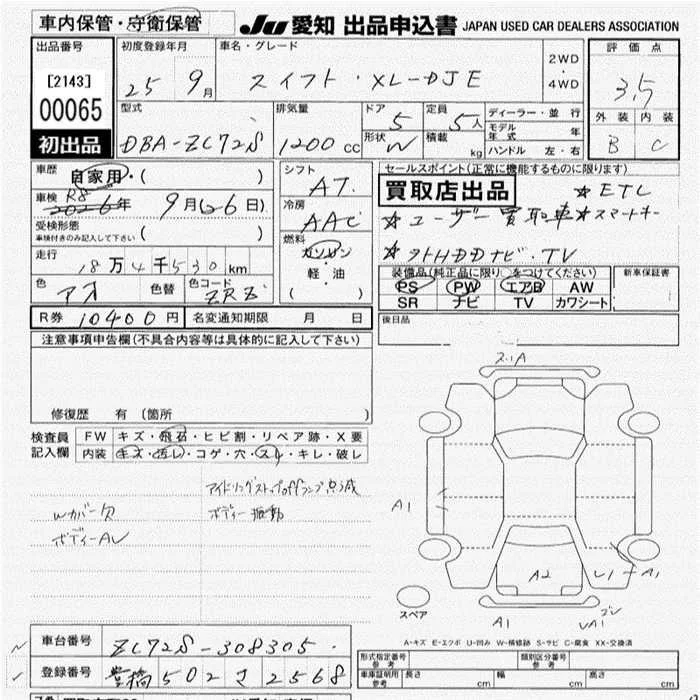 車内保管・守衛保管
JU 愛知 出品申込書 JAPAN USED CAR DEALERS ASSOCIATION
出品番号
[2143]
00065
初出品
初度登録年月
25 9月
車名・グレード
スイフト・XL-DJE
2WD
・
4WD
評価点
3.5
外装 内装
B C
型式
DBA-ZC72S
排気量
1200 cc
ドア
5
形状
W
定員
5人
積載
kg
ディーラー・並行
モデル年式 年
ハンドル 左・右
車歴
自家用・( )
車検
R8
2026年 9月(26日)
受検形態
車検付きのみ記入して下さい ( )
走行
18万4千530km
色 色替 色コード
ZRZ
シフト
AT
冷房
AAC
燃料
ガソリン
軽・油
( )
セールスポイント(正常に機能するものに限ります)
買取店出品
★ETC
★ユーザー買取車★スマートキー
★ナトHDDナビ・TV
装備品(純正品に限り○をつけてください)
PS PW エアB AW
SR ナビ TV カワシート
新車保証書
後日品
R券 10400円 名変通知期限 月 日
注意事項申告欄(不具合内容等は具体的に記入して下さい)
修復歴 有 (箇所 )
検査員記入欄
FW キズ・飛石・ヒビ割・リペア跡・X要
内装 キズ・汚レ・コゲ・穴・スレ・キレ・破レ
アイドリングストップoffランプ点滅
Wカバー欠 ボディー振動
ボディーAU
A1
A2
U1
A1
スペア
A1
UA1
A-キズ E-エクボ U-凹み W-補修跡 S-サビ C-腐食 XX-交換済
車台番号 ZC72S-308305
登録番号 豊橋502さ2568
形式指定番号 参考
類別区分番号 参考
車庫証明用 参考
長さ cm 幅 cm 高さ cm